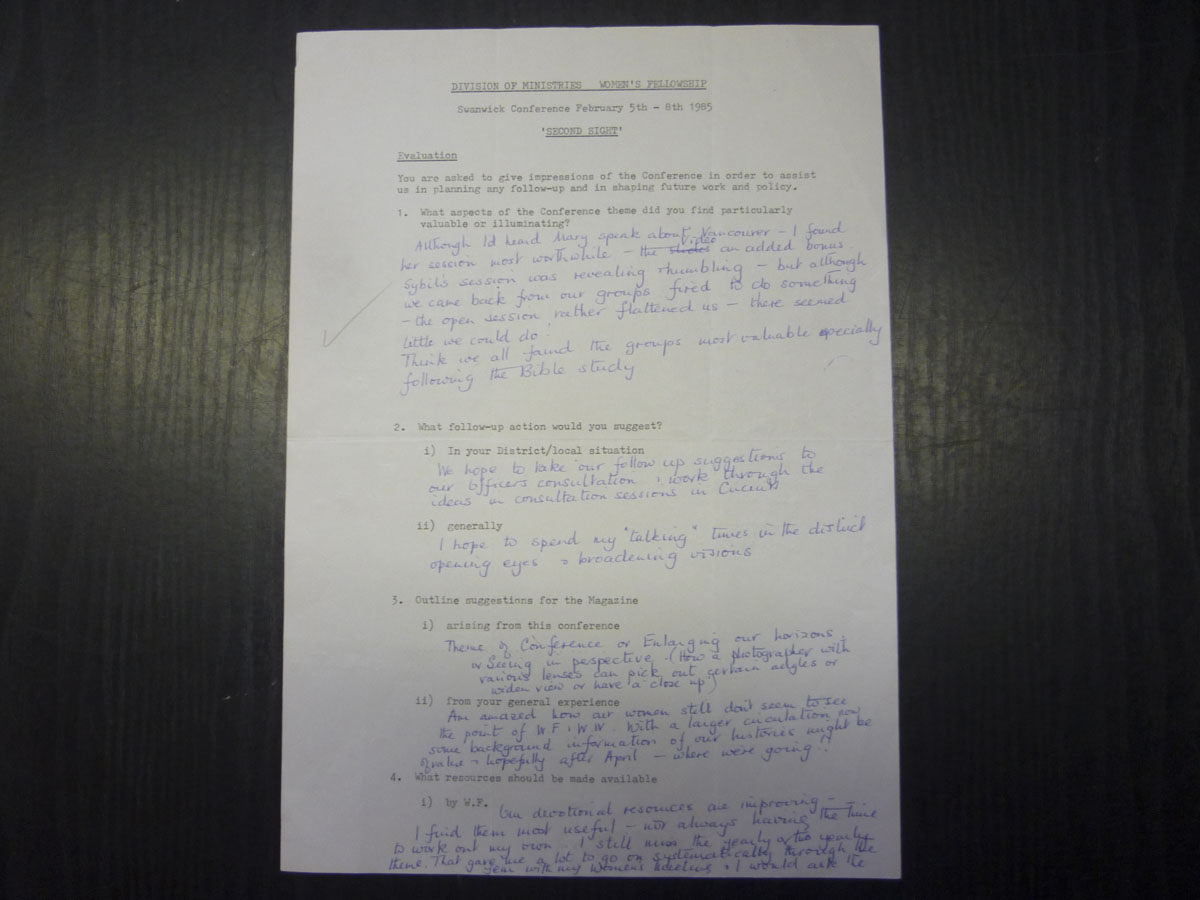 DIVISION OF MINISTRIES WOMEN'S FELLOWSHIP
Swanwick Conference February 5th - 8th 1985
'SECOND SIGHT'
Evaluation
You are asked to give impressions of the Conference in order to assist
us in planning any follow-up and in shaping future work and policy.
1. What aspects of the Conference theme did you find particularly
valuable or illuminating?
Although I'd heard Mary speak about Vancouver - I found
her session most worthwhile - the slides video an added bonus.
Sybil's session was revealing & humbling - but although
we came back from our groups fired to do something
- the open session rather flattened us - there seemed
little we could do!
Think we all found the groups most valuable especially
following the Bible study
2. What follow-up action would you suggest?
i) In your District/local situation
We hope to take our follow up suggestions to
our officers consultation & work through the
ideas in consultation sessions in
ii) generally
I hope to spend my "talking" times in the district
opening eyes & broadening visions
3. Outline suggestions for the Magazine
i) arising from this conference
Theme of Conference or Enlarging our horizons.
or Seeing in perspective. (How a photographer with
various lenses can pick out certain angles or
widen view or have a close up)
ii) from your general experience
Am amazed how our women still don't seem to see
the point of W.F. & W.W. With a larger circulation now
some background information of our histories might be
of value & hopefully after April - where were going!!
4. What resources should be made available
i) by W.F. Our devotional resources are improving -
I find them most useful - not always having the time
to work out my own. I still miss the yearly or two yearly
theme. That gave me a lot to go on systematically through the
year with my Womens Meeting. I would ask the